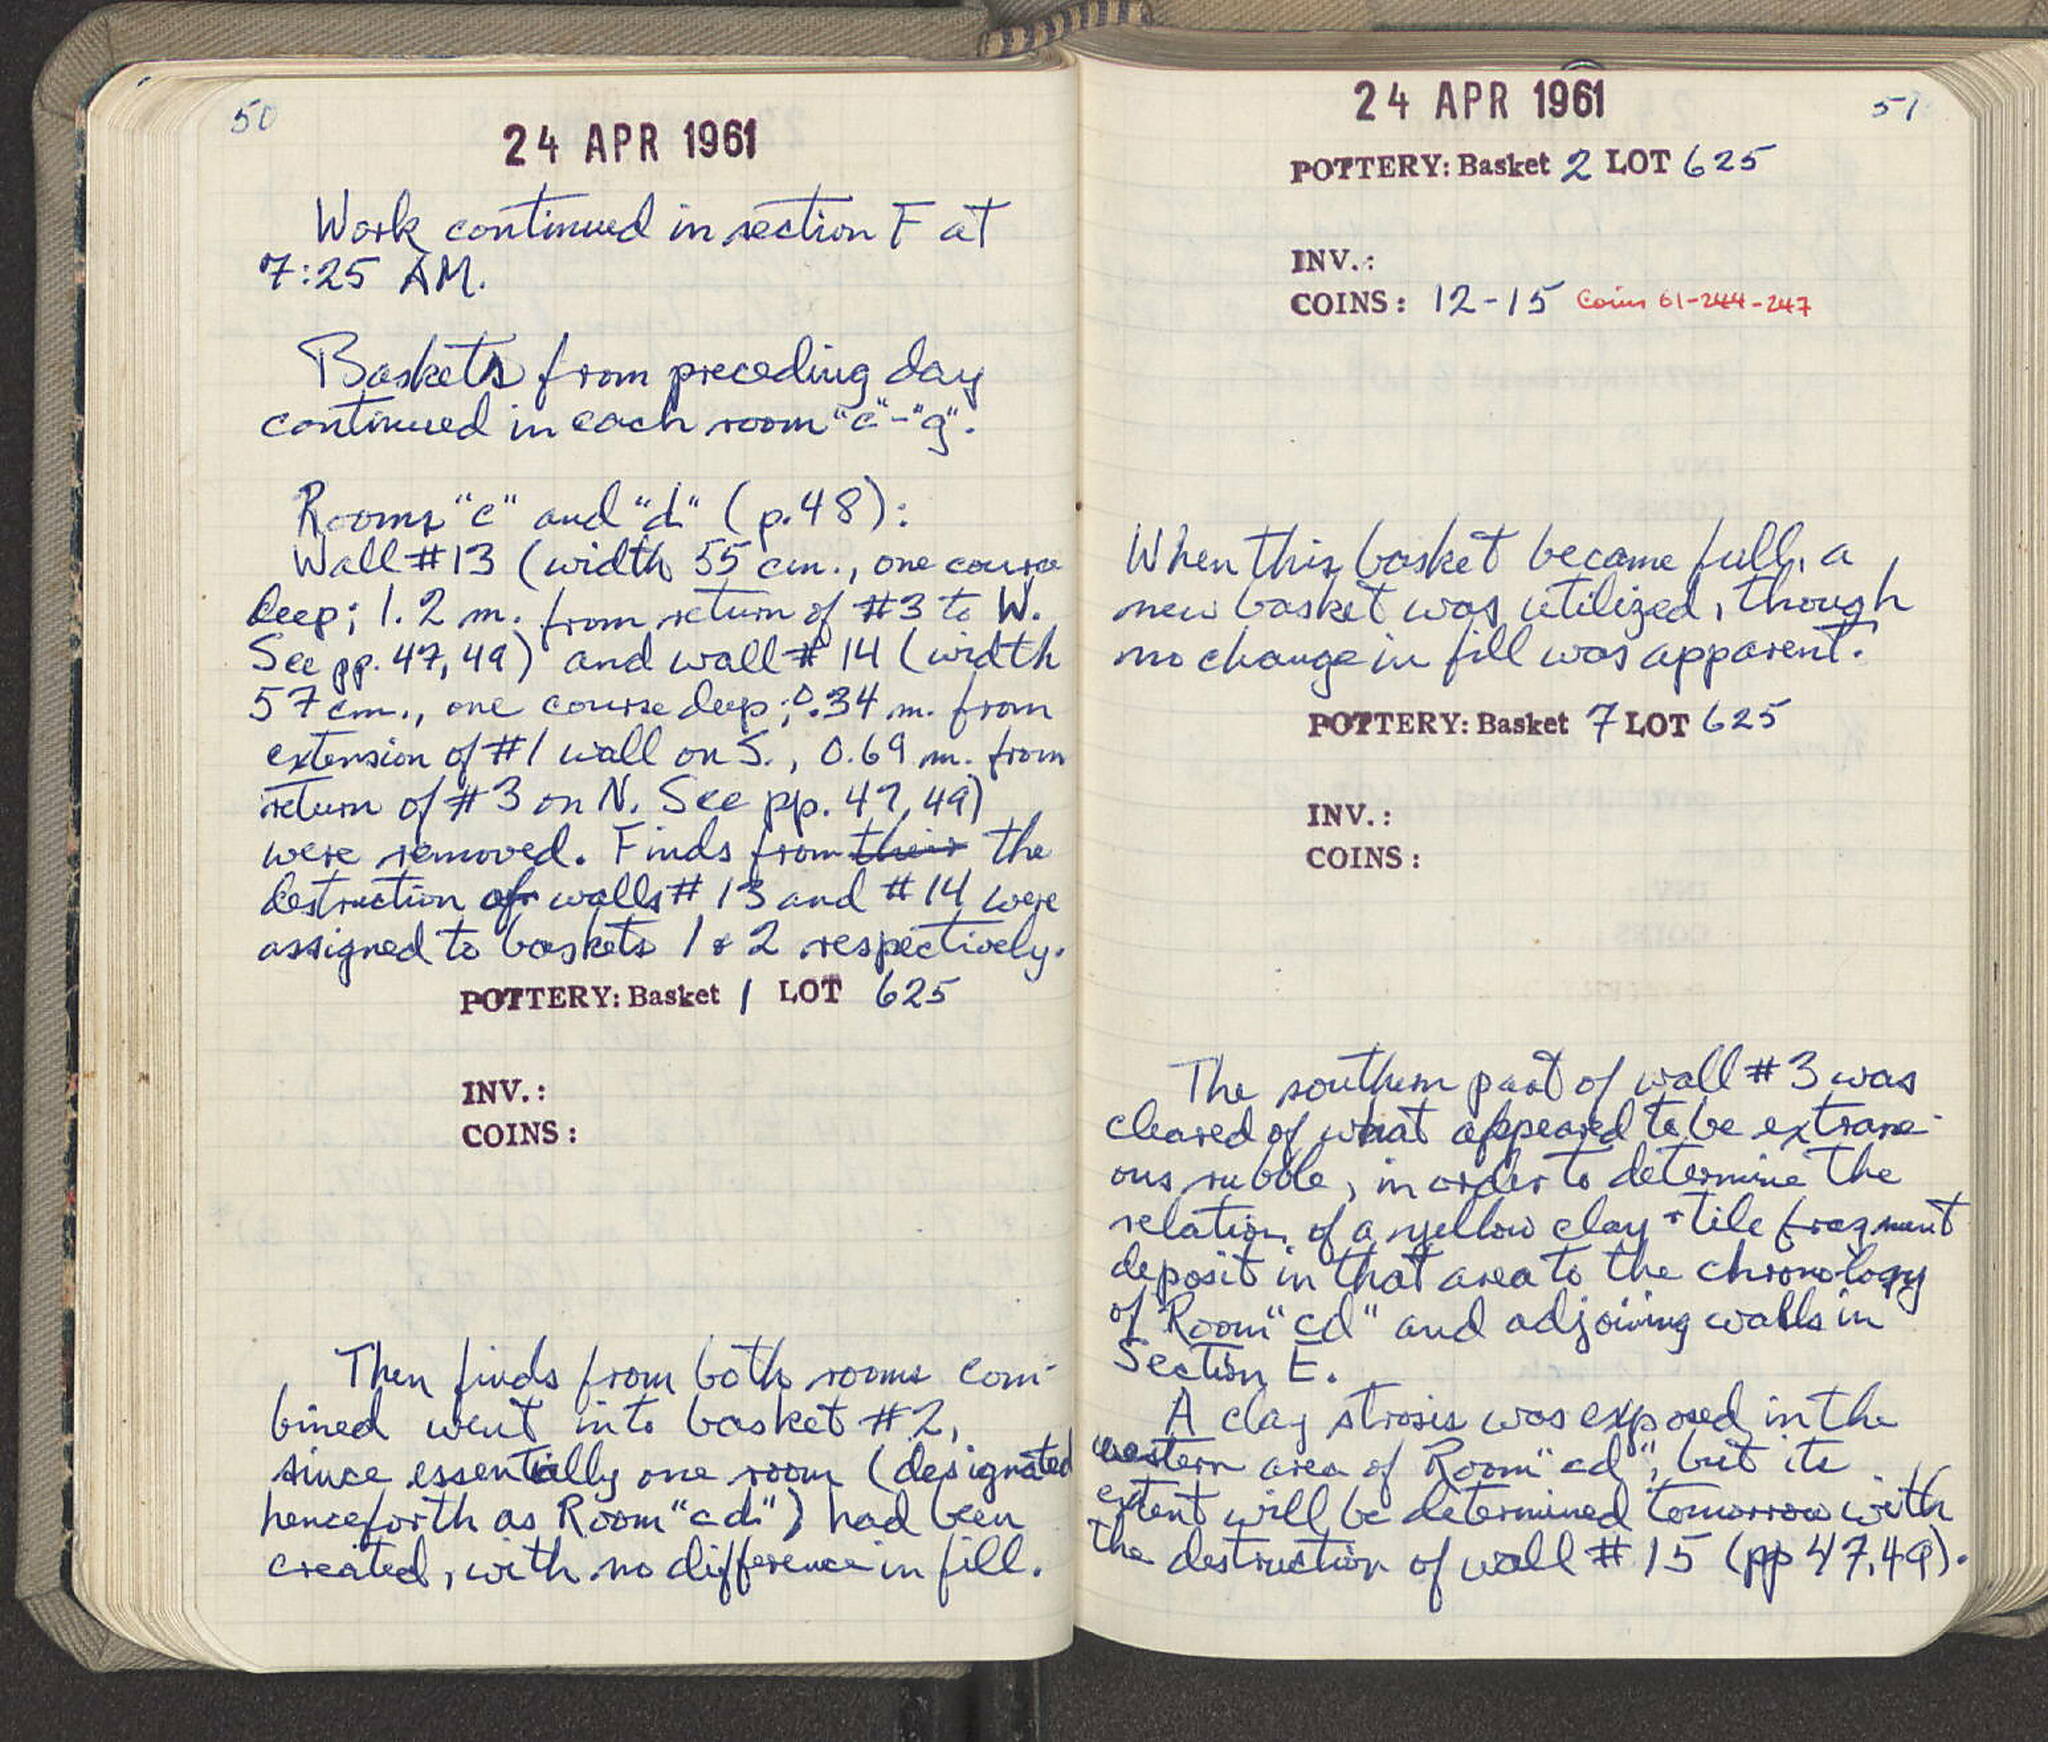 50
24 APR 1961
Work continued in section F at
7:25 AM.
Baskets from preceding day
continued in each room "c"-"g".
Rooms "c" and "d" (p.48):
Wall #13 (width 55 cm., one course
deep; 1.2 m. from return of #3 to W.
See pp. 47, 49) and wall # 14 (width
57 cm., one course deep; 0.34 m. from
extension of #1 wall on S., 0.69 m. from
return of #3 on N. See pp. 47, 49)
were removed. Finds from their the
destruction of walls # 13 and #14 were
assigned to baskets 1 & 2 respectively.
POTTERY: Basket 1 LOT 625
INV.:
COINS:
Then finds from both rooms com-
bined went into basket #2,
since essentially one room (designated
henceforth as Room "cd") had been
created, with no difference in fill.
51
24 APR 1961
POTTERY: Basket 2 LOT 625
INV.:
COINS: 12-15 Coins 61-244-247
When this basket became full, a
new basket was utilized, though
no change in fill was apparent.
POTTERY: Basket 7 LOT 625
INV.:
COINS:
The southern part of wall #3 was
cleared of what appeared to be extrane-
ous rubble, in order to determine the
relation of a yellow clay + tile fragment
deposit in that area to the chronology
of Room "cd" and adjoining walls in
Section E.
A clay strosis was exposed in the
western area of Room "cd", but its
extent will be determined tomorrow with
the destruction of wall # 15 (pp 47,49).